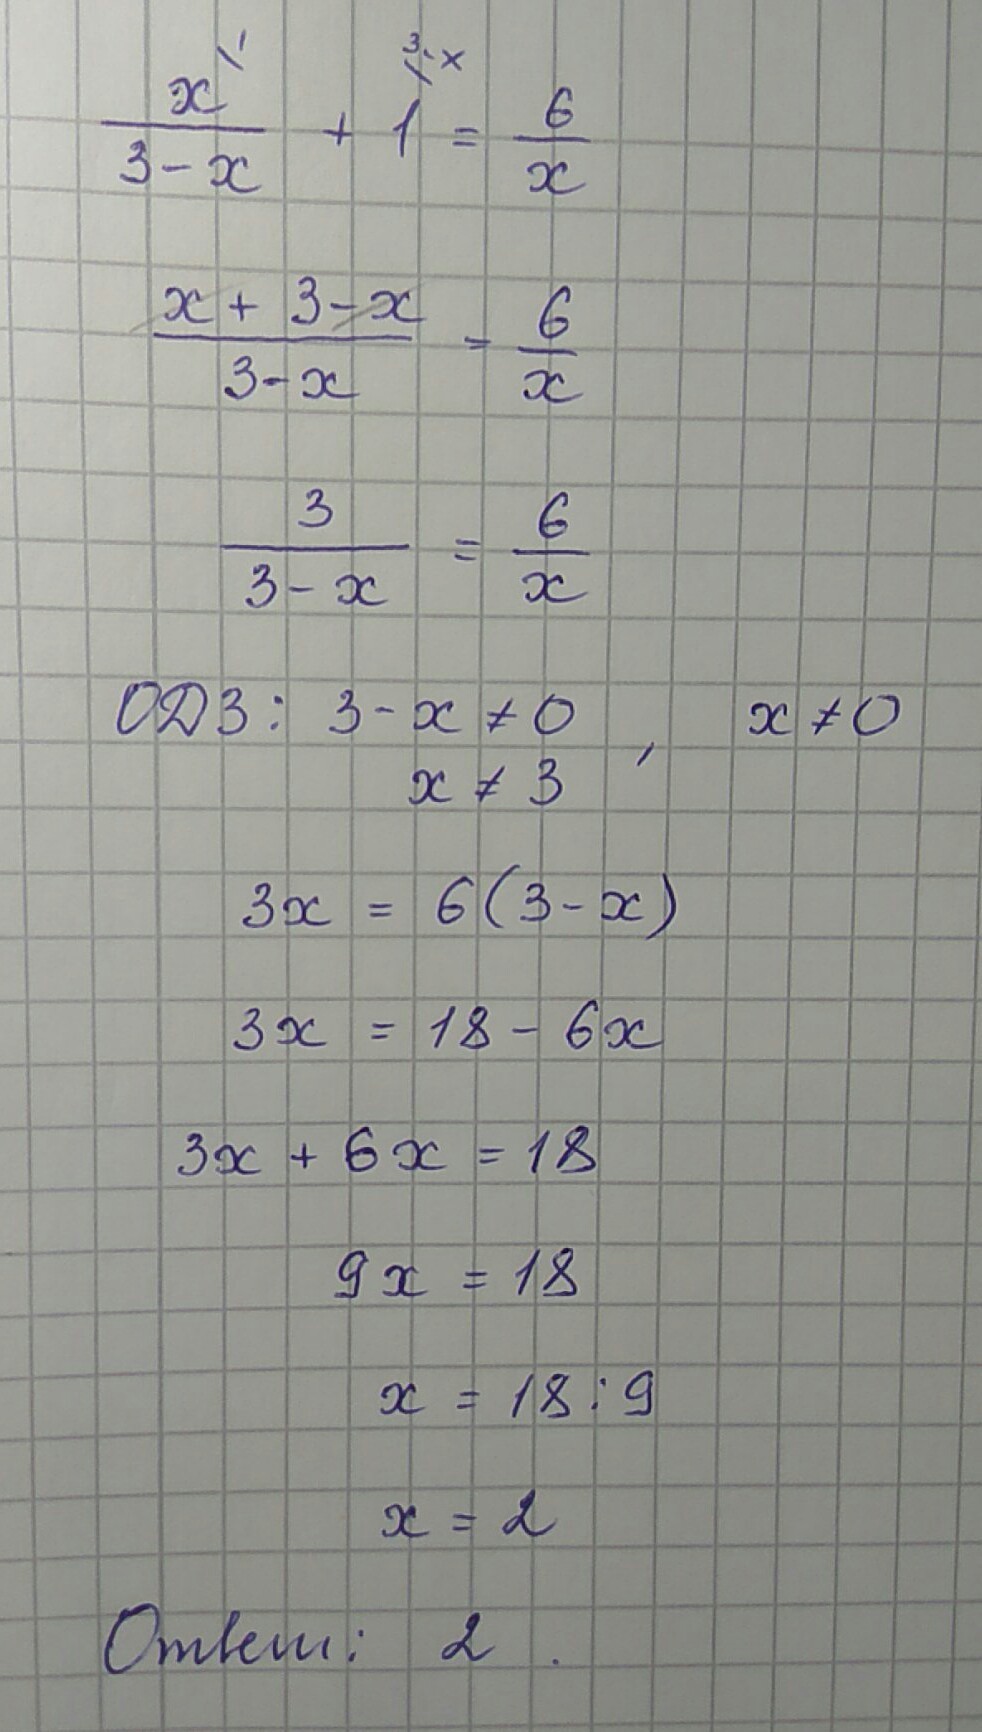 x/(3-x) \1 + 1 \3-x = 6/x
(x + 3 - x)/(3-x) = 6/x
3/(3-x) = 6/x
ОДЗ: 3-x ≠ 0, x ≠ 0
x ≠ 3
3x = 6(3-x)
3x = 18 - 6x
3x + 6x = 18
9x = 18
x = 18 : 9
x = 2
Ответ: 2.